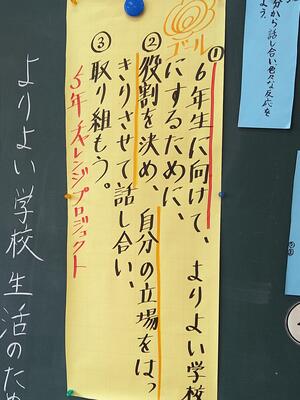 ゴール
①６年生に向けて、よりよい学校
にするために、
②役割を決め、自分の立場をはっ
きりさせて話し合い、
③取り組もう。
５年チャレンジプロジェクト
よりよい学校生活のため
分から話し合い色々な反応を
よう。